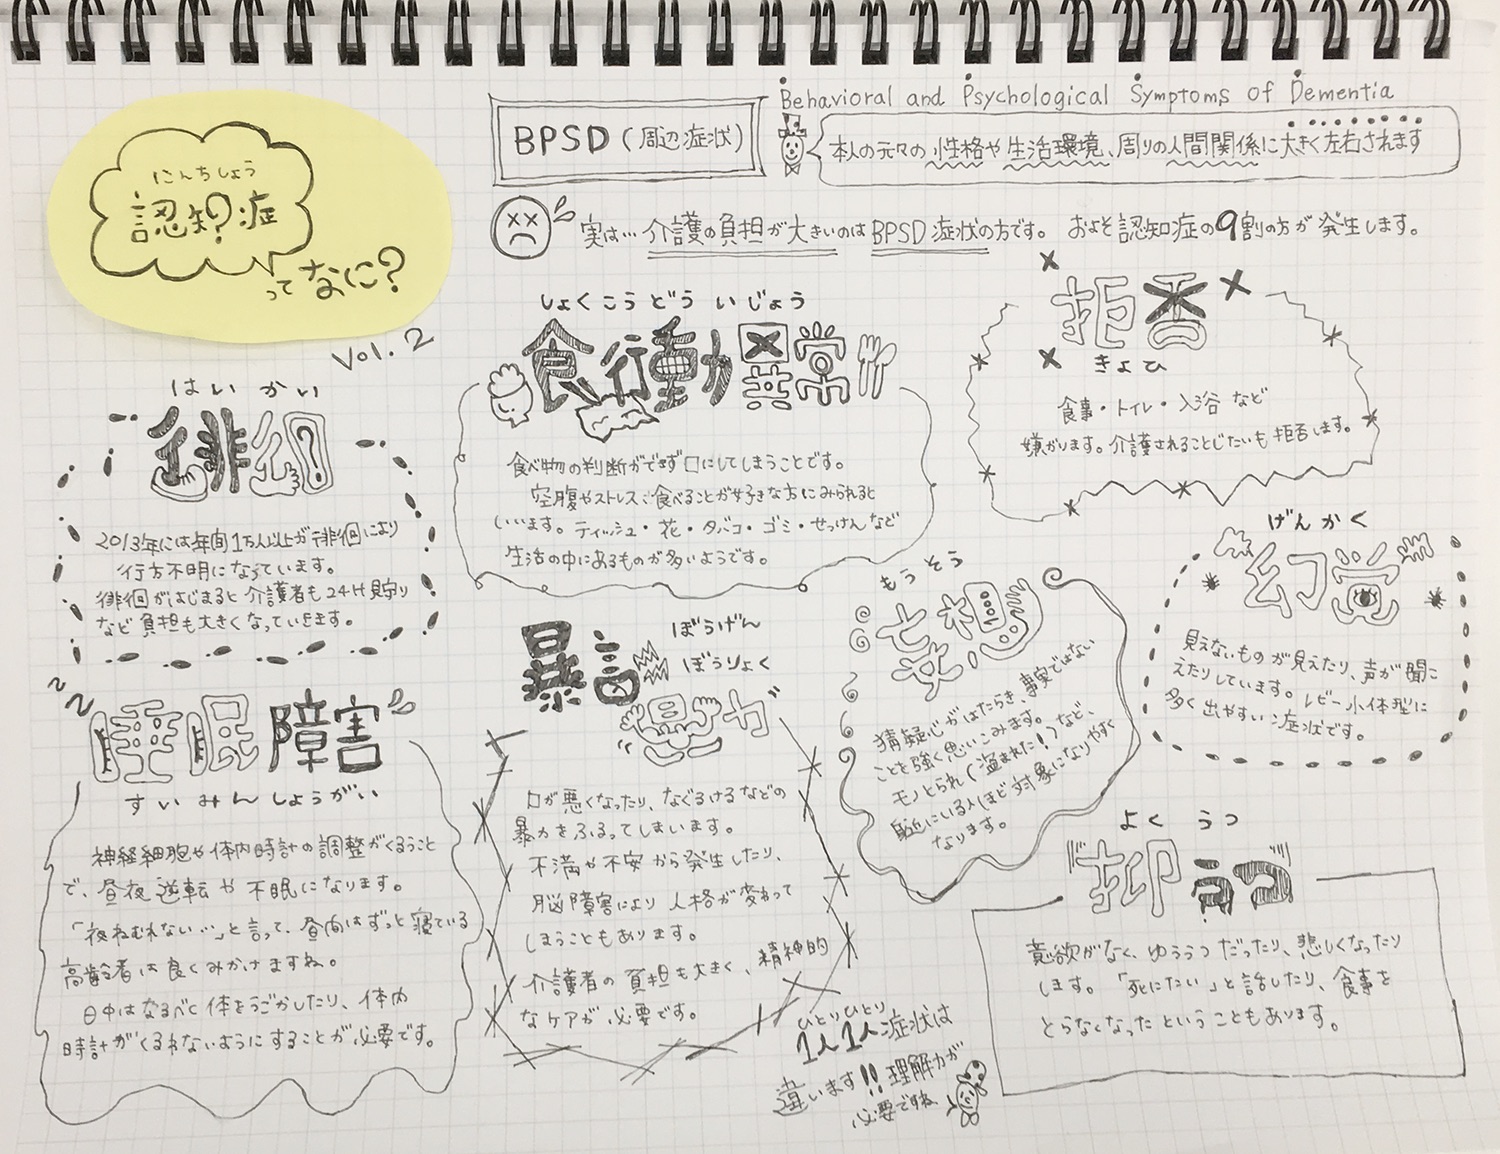 にんちしょう
認知?症
ってなに?
Vol.2
Behavioral and Psychological Symptoms of Dementia
BPSD(周辺症状)
本人の元々の性格や生活環境、周りの人間関係に大きく左右されます
実は… 介護の負担が大きいのはBPSD症状の方です。 およそ認知症の9割の方が発生します。
はいかい
徘徊
2013年には年間1万人以上が徘徊により
行方不明になっています。
徘徊がはじまると介護者も24H見守り
など負担も大きくなっていきます。
しょくこうどういじょう
食行動異常
食べ物の判断ができず口にしてしまうことです。
空腹やストレス、食べることが好きな方にみられると
いいます。ティッシュ・花・タバコ・ゴミ・せっけんなど
生活の中にあるものが多いようです。
拒否
きょひ
食事・トイレ・入浴など
嫌がります。介護されることじたいも拒否します。
げんかく
幻覚
見えないものが見えたり、声が聞こ
えたりしています。レビー小体型に
多く出やすい症状です。
もうそう
妄想
猜疑心がはたらき、事実ではない
ことを強く思いこみます。
モノとられ(盗まれた!)など、
身近にいる人ほど対象になりやすく
なります。
zzz
睡眠障害
すいみんしょうがい
神経細胞や体内時計の調整がくるうこと
で、昼夜逆転や不眠になります。
「夜ねむれない…」と言って、昼間はずっと寝ている
高齢者は良くみかけますね。
日中はなるべく体をうごかしたり、体内
時計がくるわないようにすることが必要です。
ぼうげん
ぼうりょく
暴言
暴力
口が悪くなったり、なぐるけるなどの
暴力をふるってしまいます。
不満や不安から発生したり、
脳障害により人格が変わって
しまうこともあります。
介護者の負担も大きく、精神的
なケアが必要です。
よくうつ
抑うつ
意欲がなく、ゆううつだったり、悲しくなったり
します。「死にたい」と話したり、食事を
とらなくなったということもあります。
ひとりひとり
1人1人症状は
違います!!理解力が
必要ですね